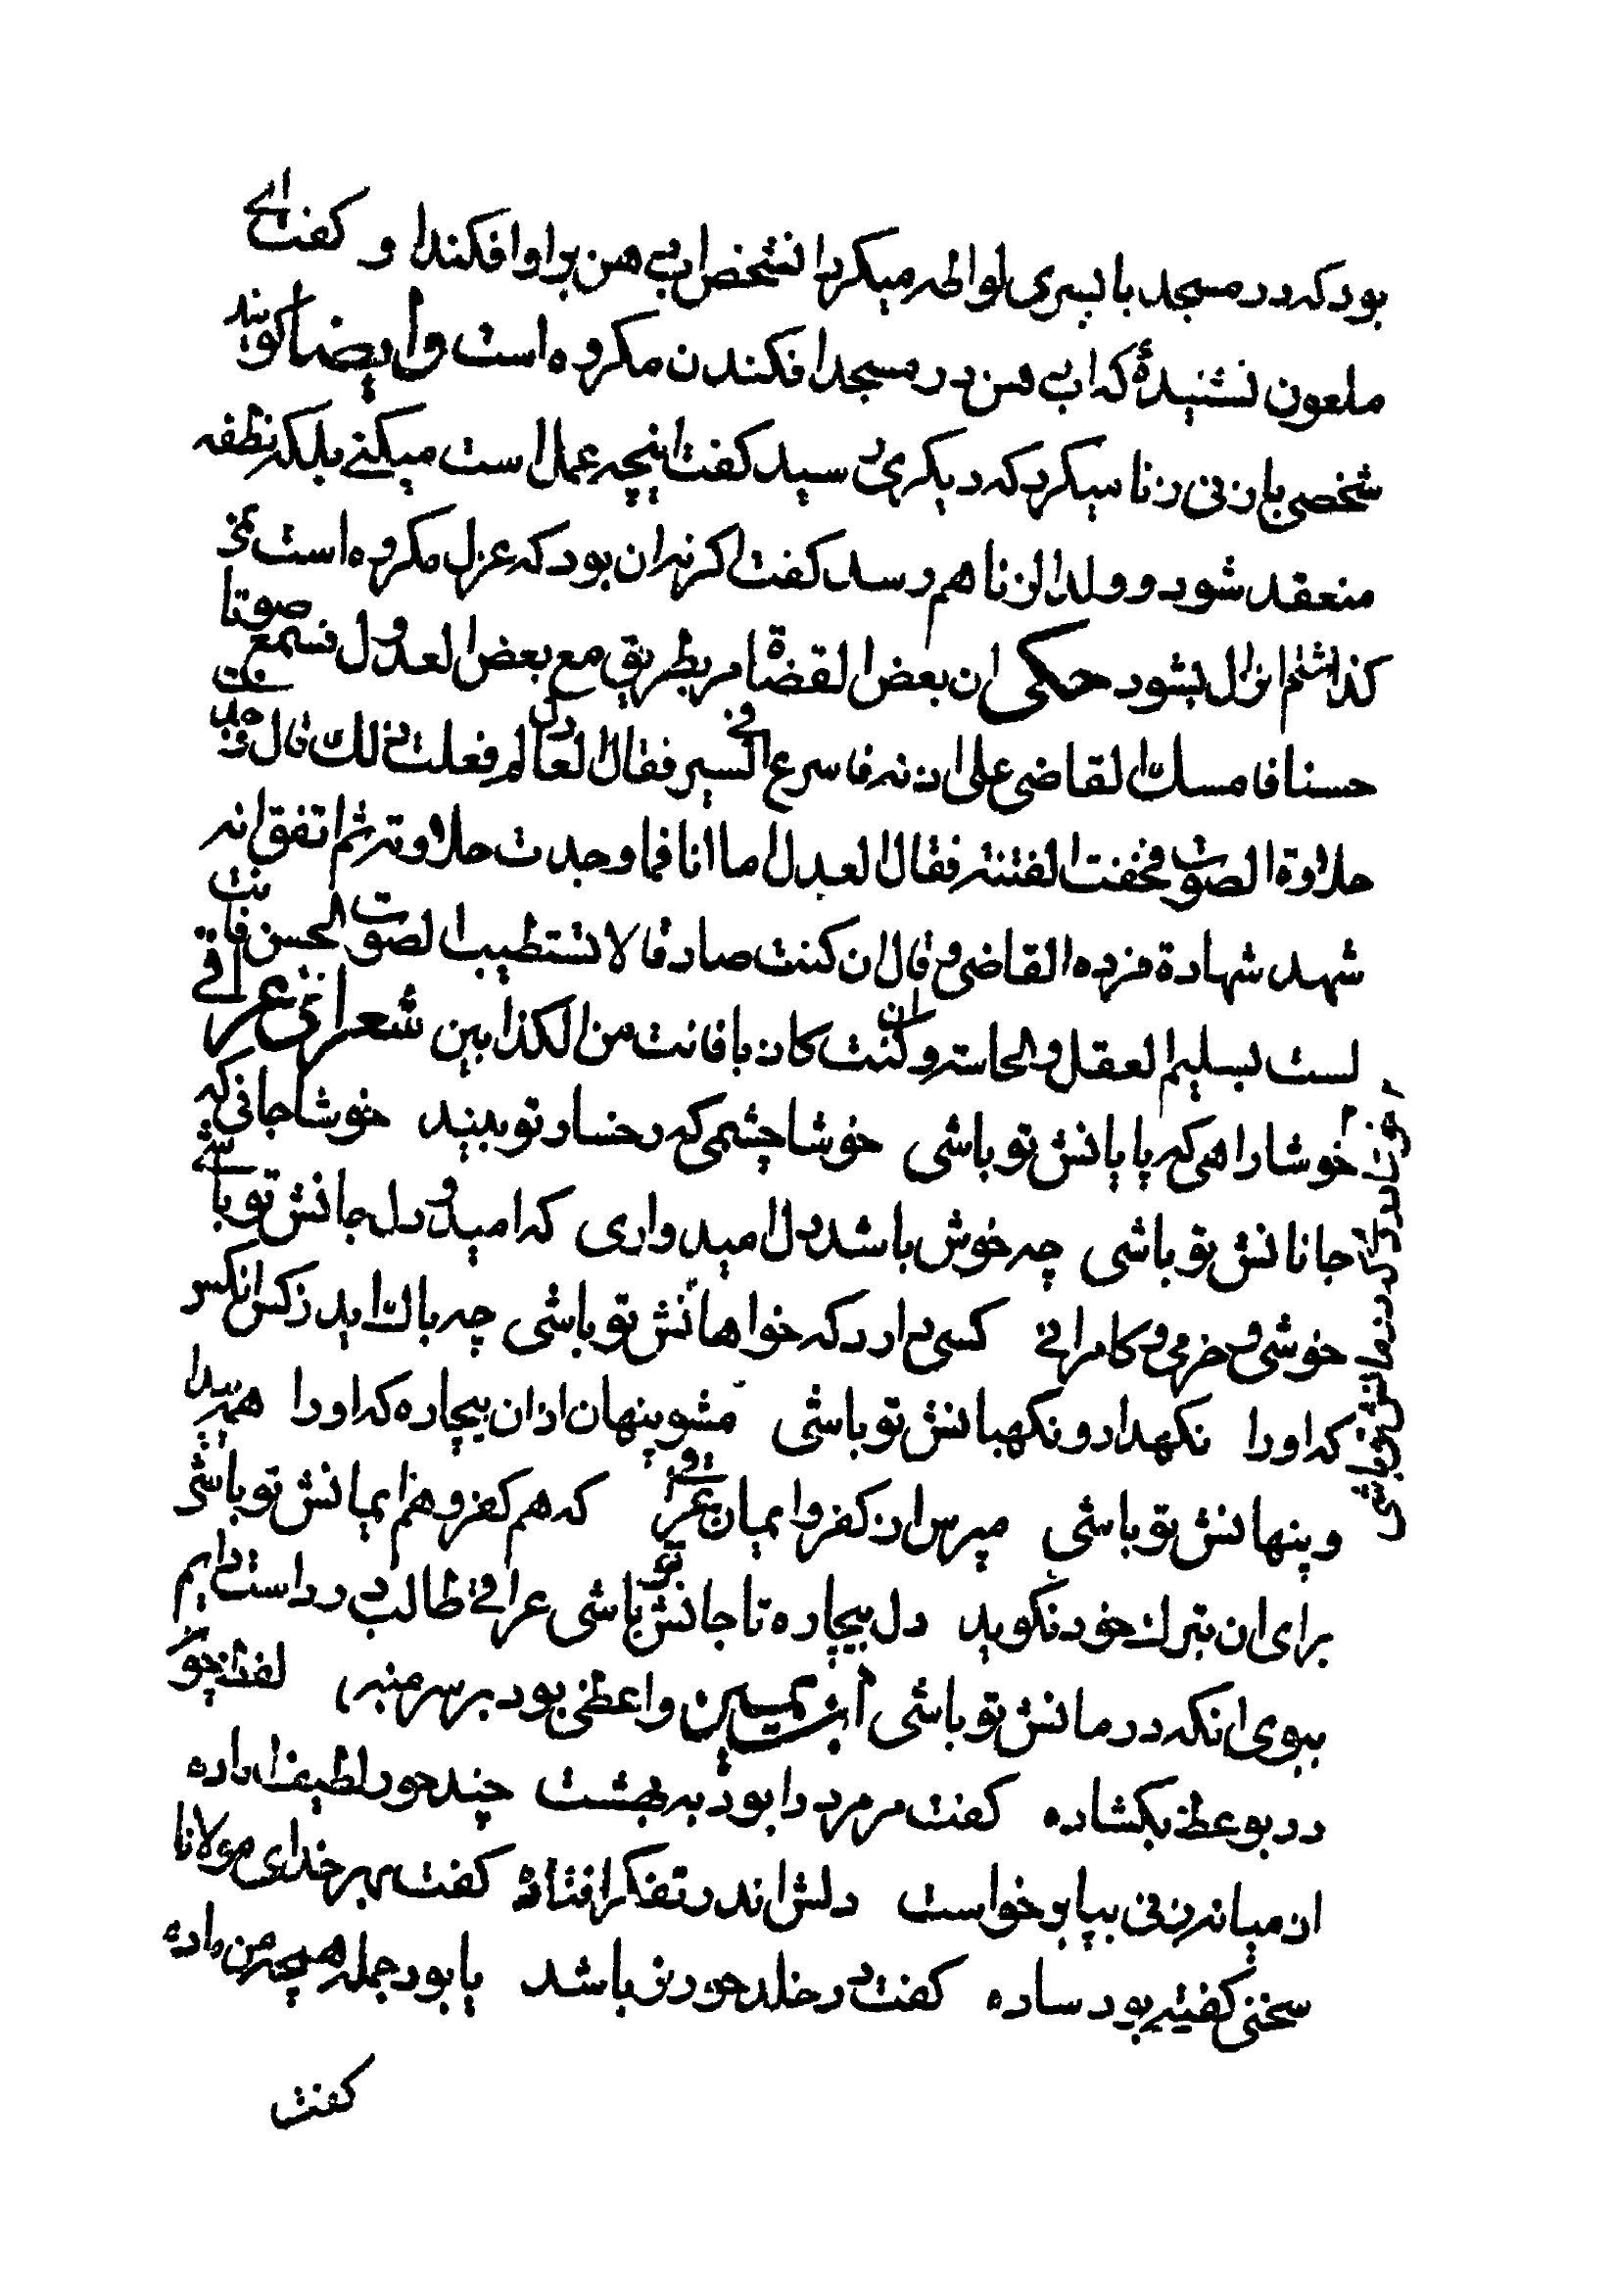 بود که در مسجد با پسری لواطه میکرد انشخص اب دهن بر او افکند و کفت ای
ملعون نشنیدهٔ که اب دهن در مسجد افکندن مکروه است و ایضا کویند
شخصی با زنی زنا میکرد که دیکری رسید کفت اینچه عمل است میکنے بلکه نطفه
منعقد شود و ولد الزنا هم رسد کفت اکر نه ان بود که عزل مکروه است نمی
کذاشتم انزال بشود حکی ان بعض القضاة مر بطریق مع بعض العدول فسمع صوتا
حسنا فامسک القاضی علی اذنه فاسرع فی السیر فقال العادل لم فعلت ذلک قال وجدت
حلاوة الصوت فخفت الفتنه فقال العدل اما انا فما وجدت حلاوته ثم اتفق انه
شهد شهادة فرده القاضی و قال ان کنت صادقا لا تستطیب الصوت الحسن فانت
لست بسلیم العقل و الحاسته و ان کنت کاذبا فانت من الکذابین شعر از عراقے
خوشا راهی که پایانش تو باشی خوشا چشمی که رخسار تو بیند خوشا جانی که
جانانش تو باشی چه خوش باشد دل امیدواری که امید دل و جانش تو باشے
خوشی و خرمی و کامرانے کسی دارد که خواهانش تو باشی چه باک اید زکس انکس
که اورا نکهدار و نکهبانش تو باشی مشو پنهان ازان بیچاره که اورا همه پیدا
و پنهانش تو باشی مپرس از کفر و ایمان عراقے که هم کفر و هم ایمانش تو باشی
برای ان بترک خود نکوید دل بیچاره تا جانش تو باشی عراقے طالب درداست دایم
ببوی انکه درمانش تو باشی ابن یمین واعظی بود بر سر منبر لفت چون
در بوعظ بکشاده کفت مر مرد را بود به بهشت چند حور لطیف اماده
ان میانه زنی بپا برخواست دلش اندر تفکر افتاده کفت بهر خدای مولانا
سخنی کفتیه بود ساده کفت در خلد حور نر باشد یا بود جمله همچه من ماده
کفت